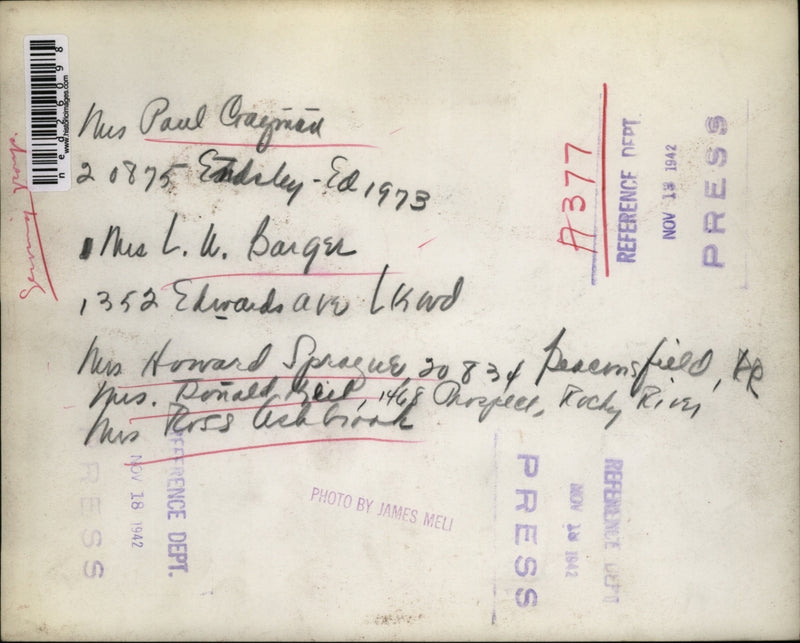 Mrs Paul Cragman
20875 Endsley - Ed 1973
Mrs L. W. Barger
1352 Edwards ave Lkwd
Mrs Howard Sprague 20834 Beaconsfield, RR
Mrs. Donald 1468 Prospect, Rocky River
Mrs Ross Ashbrook
PHOTO BY JAMES MELI
#377
REFERENCE DEPT.
NOV 18 1942
PRESS
RESS
NOV 18 1942
REFERENCE DEPT.
PRESS
NOV 18 1942
REFERENCE DEPT
www.historicimages.com
ned26098